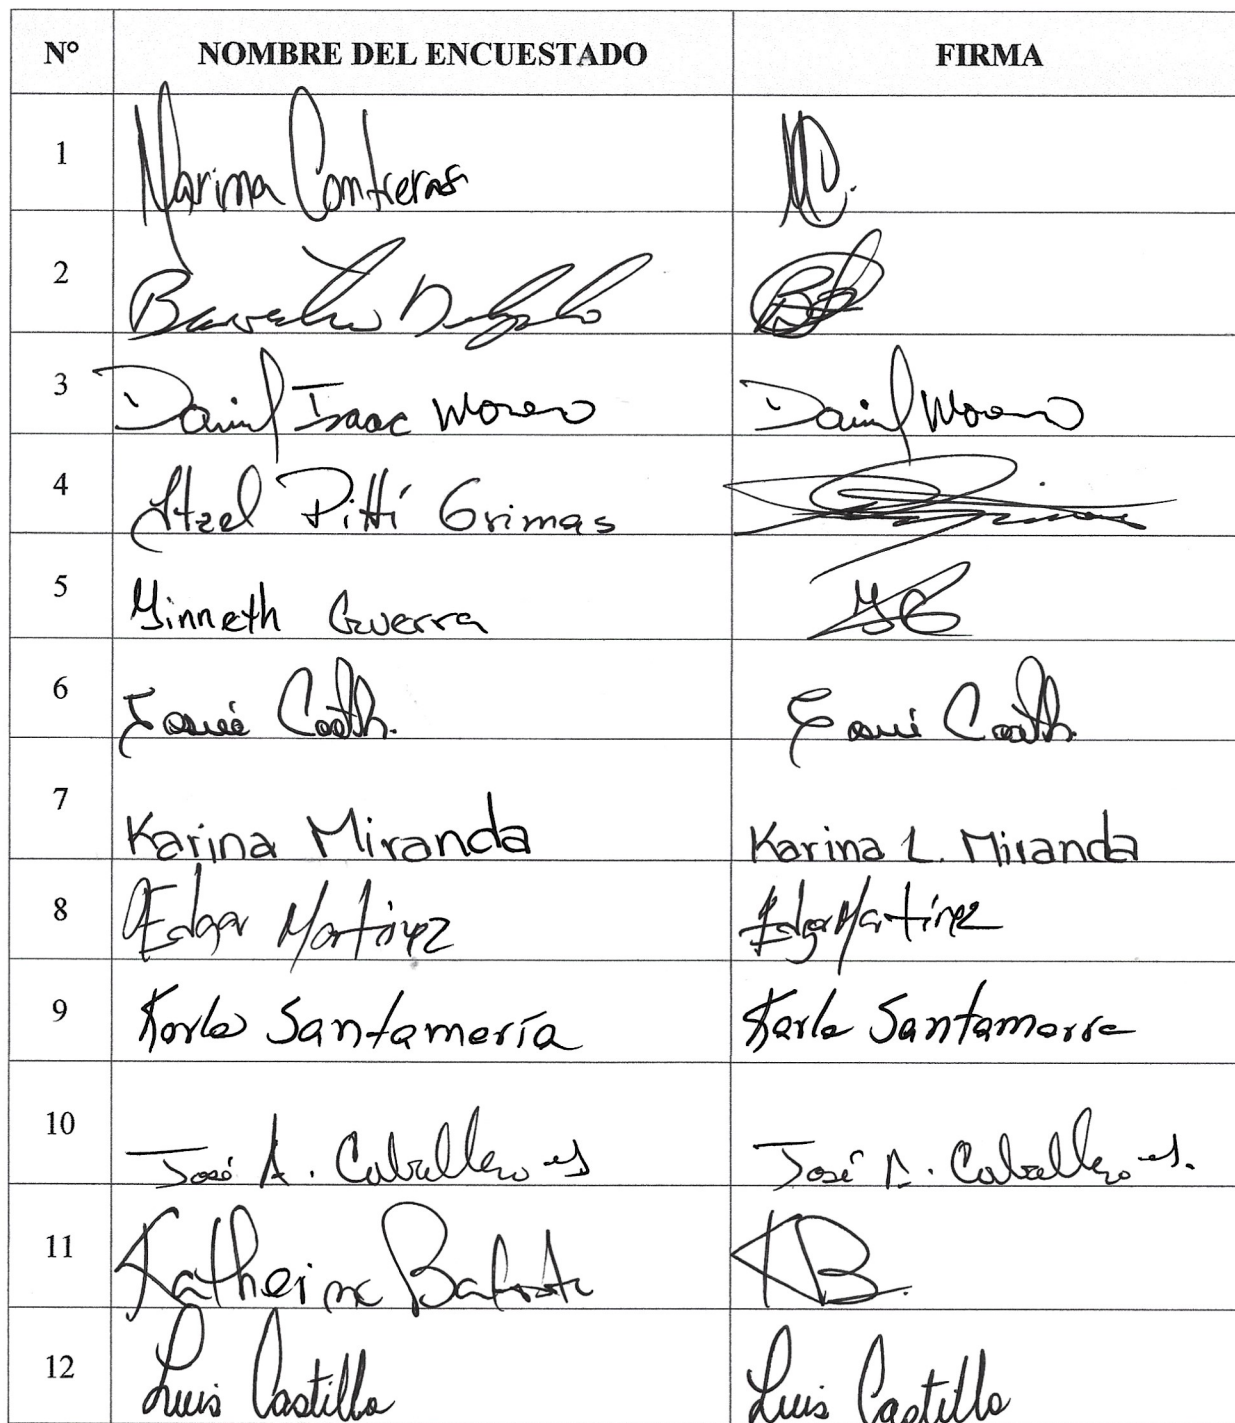 N° NOMBRE DEL ENCUESTADO FIRMA
1 Marina Contreras MC.
2 Delgado
3 Daniel Isaac Moreno Daniel Moreno
4 Itzel Pittí Grimas
5 Yinneth Guerra YG
6
7 Karina Miranda Karina L. Miranda
8 Edgar Martínez Edgar Martínez
9 Karla Santamaría Karla Santamaría
10 José A. Caballero José A. Caballero
11 Katherine Batista KB.
12 Luis Castillo Luis Castillo